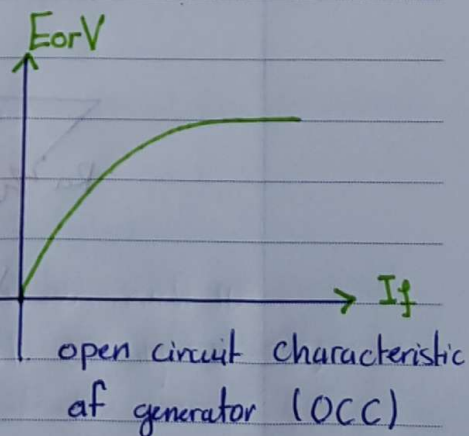 EorV
If
open circuit characteristic
af generator (OCC)